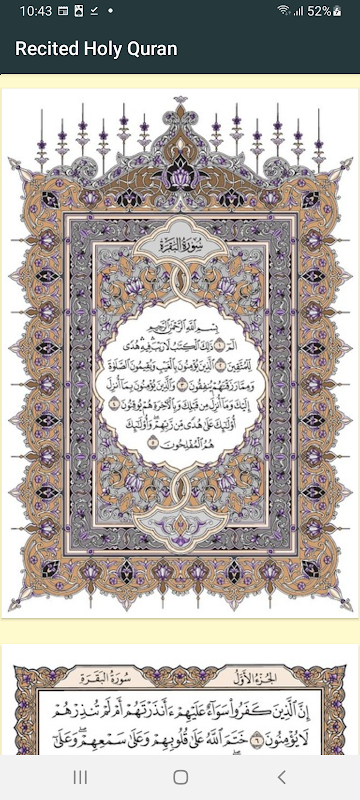 10:43 52%
Recited Holy Quran
سُورَةُ البَقَرَةِ
بِسْمِ اللَّهِ الرَّحْمَٰنِ الرَّحِيمِ
الٓمٓ ﴿١﴾ ذَٰلِكَ الْكِتَٰبُ لَا رَيْبَ فِيهِ هُدًى
لِلْمُتَّقِينَ ﴿٢﴾ الَّذِينَ يُؤْمِنُونَ بِالْغَيْبِ وَيُقِيمُونَ الصَّلَوٰةَ
وَمِمَّا رَزَقْنَٰهُمْ يُنْفِقُونَ ﴿٣﴾ وَالَّذِينَ يُؤْمِنُونَ بِمَا أُنْزِلَ
إِلَيْكَ وَمَا أُنْزِلَ مِنْ قَبْلِكَ وَبِالْآخِرَةِ هُمْ يُوقِنُونَ ﴿٤﴾
أُولَٰئِكَ عَلَىٰ هُدًى مِنْ رَبِّهِمْ وَأُولَٰئِكَ
هُمُ الْمُفْلِحُونَ ﴿٥﴾
الجُزءُ الأَوَّلُ سُورَةُ البَقَرَةِ
إِنَّ الَّذِينَ كَفَرُوا سَوَاءٌ عَلَيْهِمْ ءَأَنْذَرْتَهُمْ أَمْ لَمْ تُنْذِرْهُمْ
لَا يُؤْمِنُونَ ﴿٦﴾ خَتَمَ اللَّهُ عَلَىٰ قُلُوبِهِمْ وَعَلَىٰ سَمْعِهِمْ وَعَلَىٰ